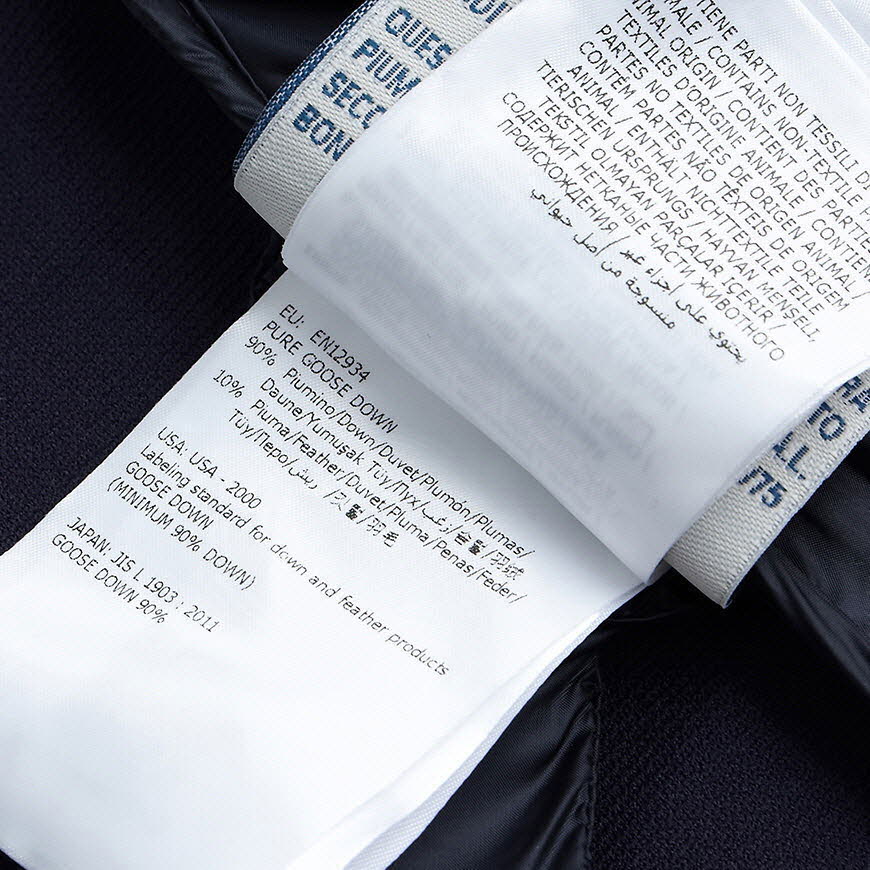 QUES
PIUM
SECO
BON
TIENE PARTI NON TESSILI DI
MALE / CONTAINS NON TEXTILE
ANIMAL ORIGIN / CONTIENT DES PARTIES
TEXTILES D'ORIGINE ANIMALE / CONTIENE
PARTES NO TEXTILES DE ORIGEN ANIMAL /
CONTÉM PARTES NÃO TÊXTEIS DE ORIGEM
ANIMAL / ENTHÄLT NICHTTEXTILE TEILE
TIERISCHEN URSPRUNGS / HAYVAN MENŞELİ,
TEKSTIL OLMAYAN PARÇALAR İÇERİR /
СОДЕРЖИТ НЕТКАНЫЕ ЧАСТИ ЖИВОТНОГО
ПРОИСХОЖДЕНИЯ / يحتوي على أجزاء غير
منسوجة من أصل حيواني
TO
LL.
775
EU: EN12934
PURE GOOSE DOWN
90% Piumino/Down/Duvet/Plumón/Plumas/
Daune/Yumuşak Tüy/Пух/زغب/솜털/羽绒
10% Piuma/Feather/Duvet/Pluma/Penas/Feder/
Tüy/Перо/ريش/깃털/羽毛
USA: USA - 2000
Labeling standard for down and feather products
GOOSE DOWN
(MINIMUM 90% DOWN)
JAPAN: JIS L 1903 : 2011
GOOSE DOWN 90%